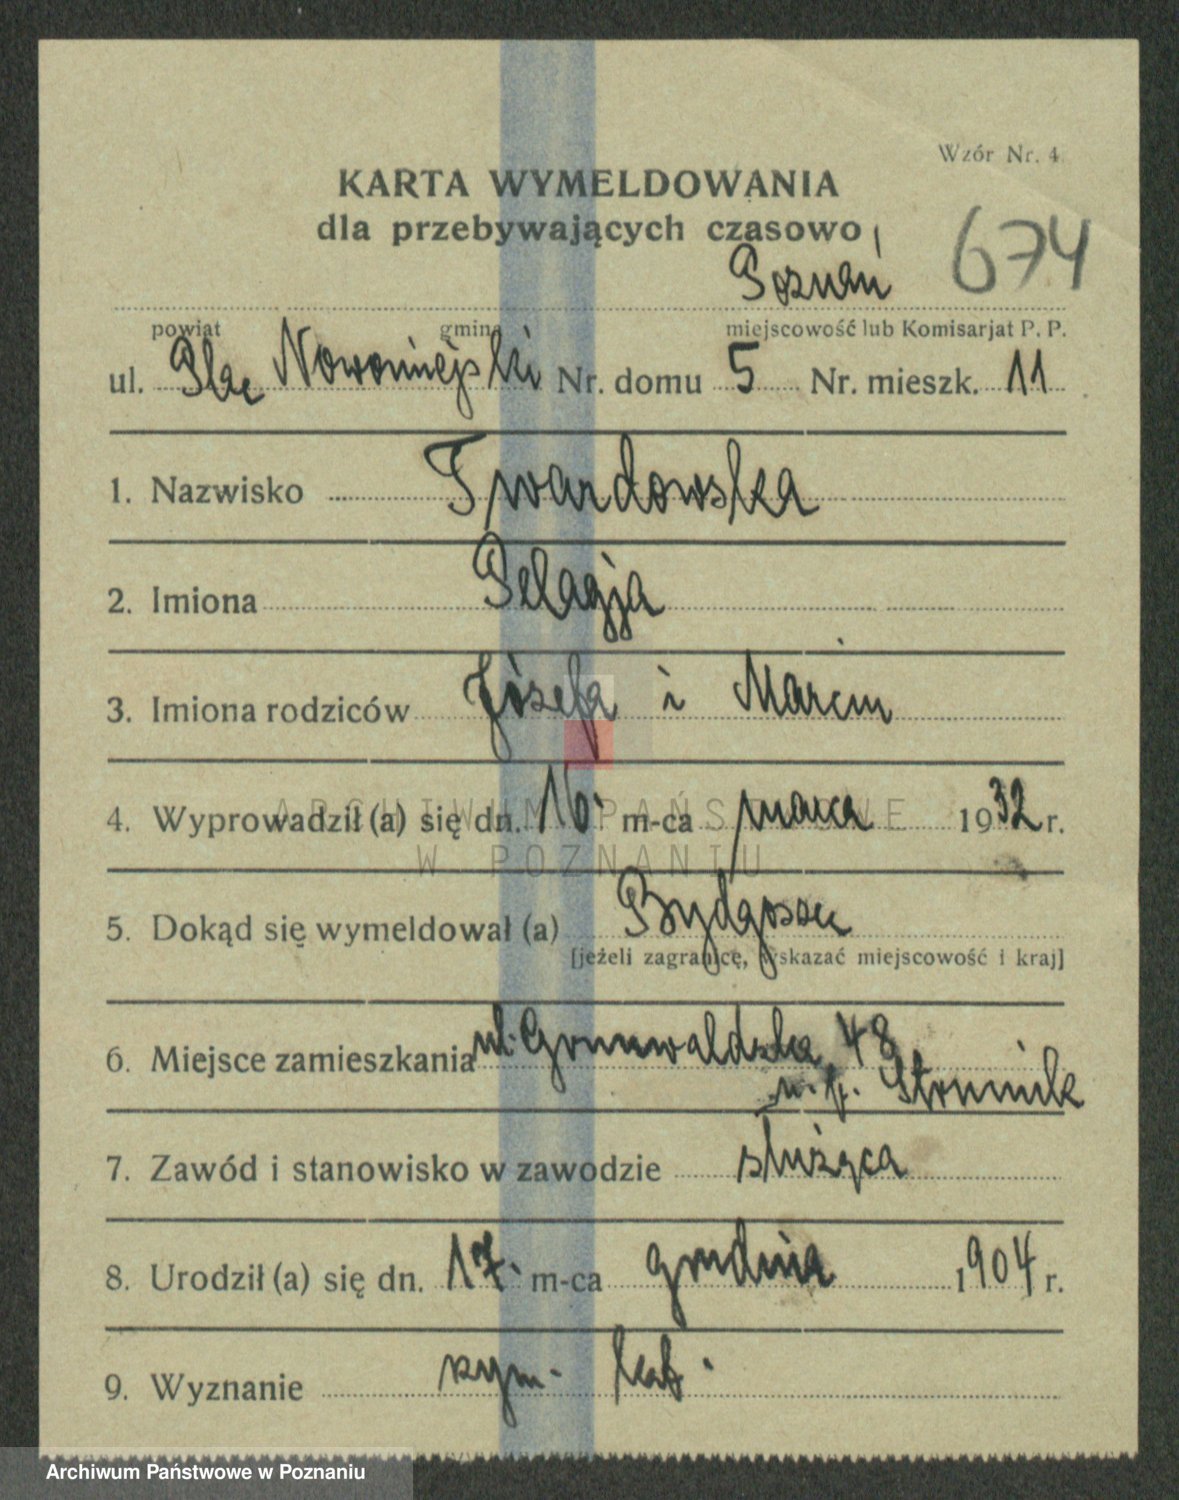 Wzór Nr. 4
KARTA WYMELDOWANIA
dla przebywających czasowo
674
Poznań
powiat gmina miejscowość lub Komisarjat P. P.
ul. Plac Nowomiejski Nr. domu 5 Nr. mieszk. 11
1. Nazwisko Twardowska
2. Imiona Pelagja
3. Imiona rodziców Józefa i Marcin
4. Wyprowadził (a) się dn. 16. m-ca marca 1932 r.
ARCHIWUM PAŃSTWOWE
W POZNANIU
5. Dokąd się wymeldował (a) Bydgoszcz
[jeżeli zagranicę, wskazać miejscowość i kraj]
6. Miejsce zamieszkania ul. Grunwaldzka 48
u. p. Strumik
7. Zawód i stanowisko w zawodzie służąca
8. Urodził (a) się dn. 17. m-ca grudnia 1904 r.
9. Wyznanie rzym. kat.
Archiwum Państwowe w Poznaniu